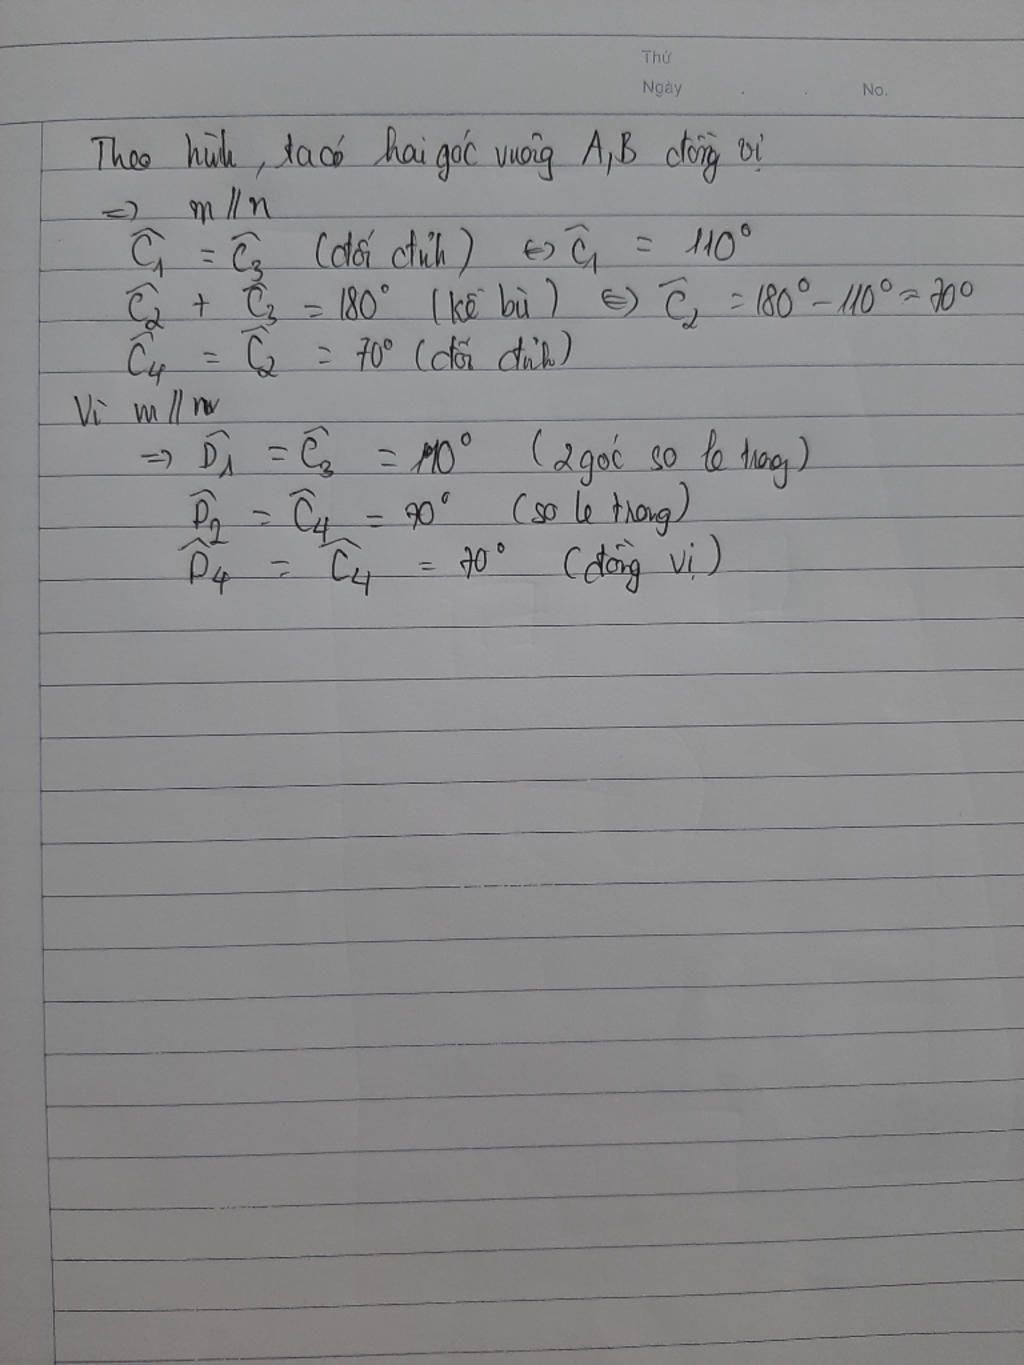 Thứ
Ngày . . No.
Theo hình, ta có hai góc vuông A, B đồng vị
=> m // n
Ĉ₁ = Ĉ₃ (đối đỉnh) <=> Ĉ₁ = 110°
Ĉ₂ + Ĉ₃ = 180° (kề bù) <=> Ĉ₂ = 180° - 110° = 70°
Ĉ₄ = Ĉ₂ = 70° (đối đỉnh)
Vì m // n
=> D̂₁ = Ĉ₃ = 110° (2 góc so le trong)
D̂₂ = Ĉ₄ = 70° (so le trong)
D̂₄ = Ĉ₄ = 70° (đồng vị)